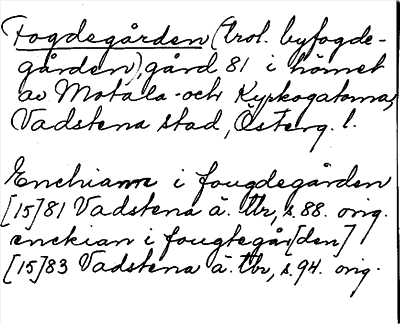 Fogdegården (trol. byfogde-
gården), gård 81 i hörnet
av Motala- och Kyrkogatorna,
Vadstena stad, Österg. l.
Enchiann i fougdegården
[15]81 Vadstena ä. tbr, s. 88. orig.
enckian i fougtegår[den]
[15]83 Vadstena ä. tbr, s. 94. orig.